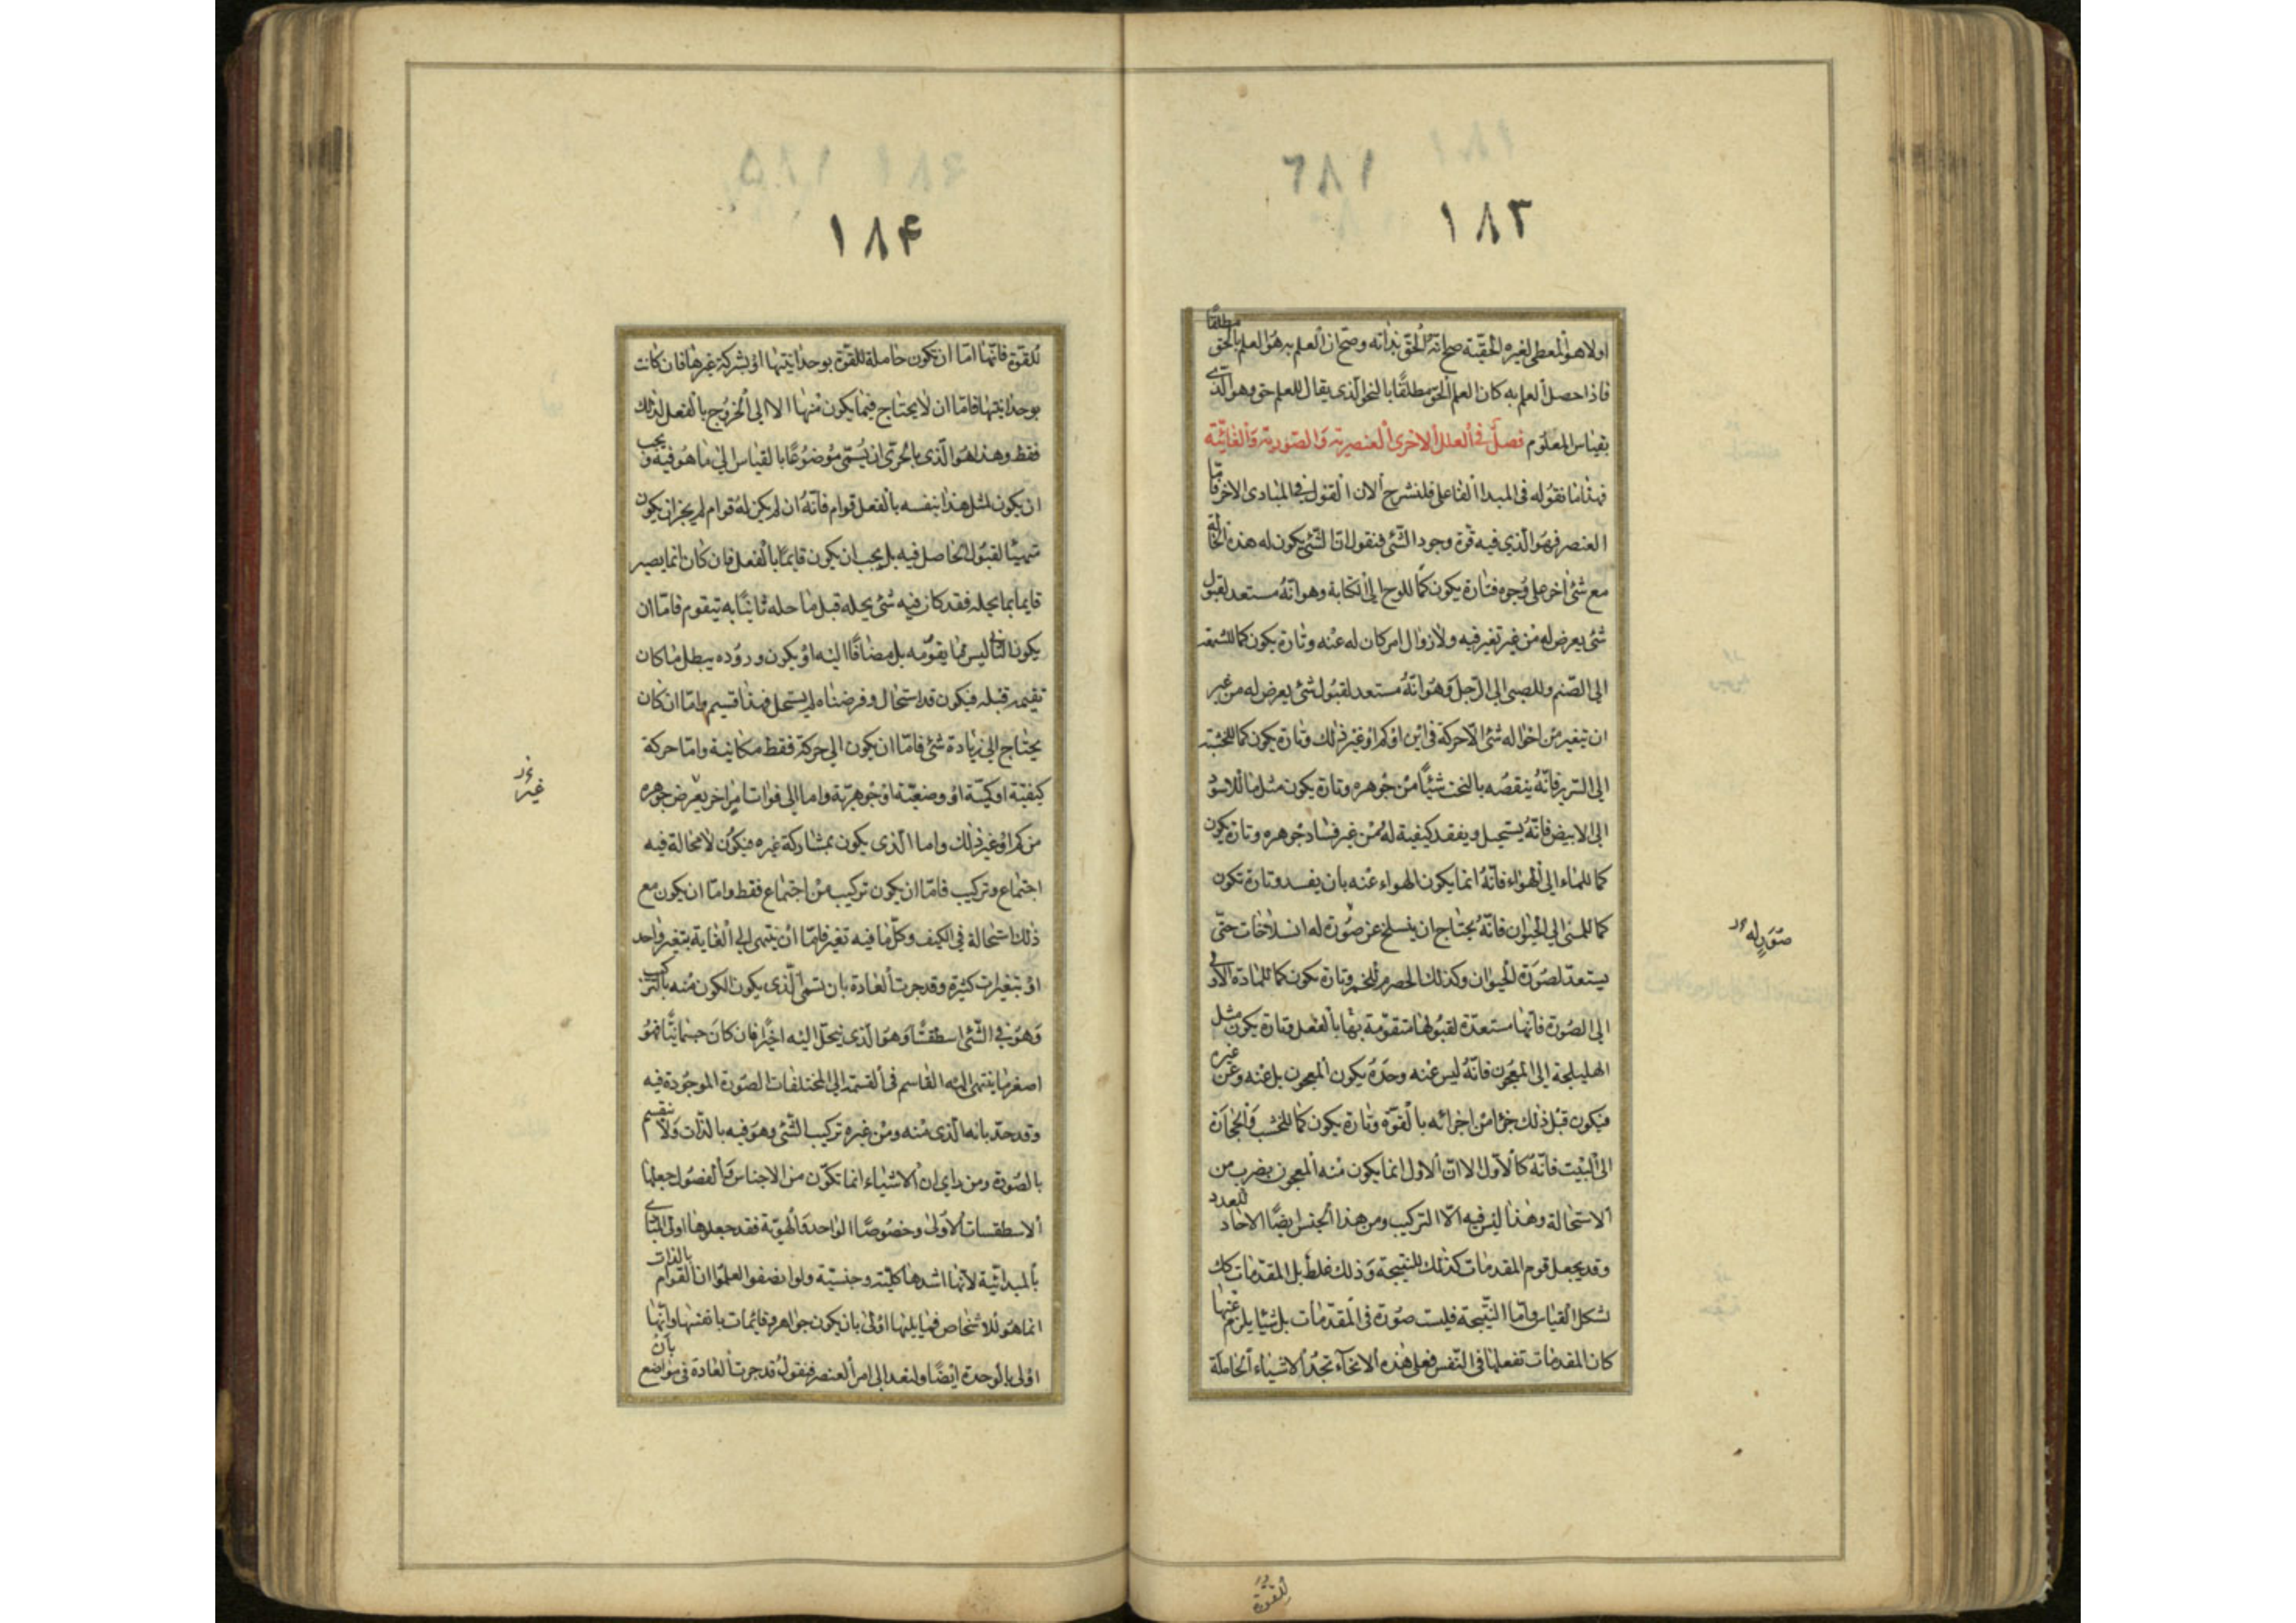 ١٨٣
اولا هو المعطى لغيره الحقيّة صح انّه الحق بذاته وصح ان العلم به هو العلم بالحق مطلقًا
فاذا حصل العلم به كان العلم الحق مطلقًا بالنحو الذى يقال للعلم حق وهو الّذى
بقياس المعلوم فصل فى العلل الاخرى العنصرية والصورية والغائية
فهذا ما نقوله فى المبدا الفاعلى فلنشرح الان القول فى المبادى الاخر فامّا
العنصر فهو الّذى فيه قوة وجود الشئ فنقول ان الشئ يكون له هذه الحالة
مع شئ اخر على وجوه فتارة يكون كما للوح الى الكتابة وهو انّه مستعد لقبول
شئ يعرض له من غير تغير فيه ولا زوال امر كان له عنه وتارة يكون كما للشمعة
الى الصّنم وللصبى الى الرّجل وهو انّه مستعد لقبول شئ يعرض له من غير
ان يتغير من احواله شئ الّا حركة فى اين او كم او غير ذلك وتارة يكون كما للخشبة
الى السّرير فانّه ينقصه بالنحت شيئًا من جوهره وتارة يكون مثل ما للاسود
الى الابيض فانّه يستحيل ويفقد كيفية له من غير فساد جوهره وتارة يكون
كما للماء الى الهواء فانّه انما يكون الهواء عنه بان يفسد وتارة تكون
كما للمنى الى الحيوان فانّه يحتاج ان ينسلخ عن صورة له انسلاخات حتّى
يستعدّ لصورة الحيوان وكذلك الحصرم للخمر وتارة يكون كما للمادة الاولى
الى الصورة فانّها مستعدّة لقبولها متقوّمة بها بالفعل وتارة يكون مثل
الهليلجة الى المعجون فانّه ليس عنه وحده يكون المعجون بل عنه وعن غيره
فيكون قبل ذلك جزءا من اجزائه بالقوّة وتارة يكون كما للخشب والحجارة
الى البيت فانّه كالاوّل الا انّ الاول انما يكون منه المعجون بضرب من
الاستحالة وهذا ليس فيه الّا التركيب ومن هذا الجنس ايضًا الاحاد للعدد
وقد يجعل قوم المقدمات كذلك للنتيجة وذلك غلط بل المقدّمات كك
لشكل القياس وامّا النّتيجة فليست صورة فى المقدّمات بل شيئا يلزم عنها
كان المقدمات تفعلها فى النّفس فعلى هذه الانحاء تجد الاشياء الحاملة
صور له
للقوّة
١٨۴
للقوّة فانّها امّا ان تكون حاملة للقوّة بوحدانيّتها او بشركة غيرها فان كانت
بوحدانيّتها فامّا ان لا يحتاج فيما يكون منها الا الى الخروج بالفعل لذلك
فقط وهذا هو الّذى بالحرىّ ان يسمّى موضوعًا بالقياس الى ما هو فيه ويجب
ان يكون لمثل هذا بنفسه بالفعل قوام فانّه ان لم يكن له قوام لم يجز ان يكون
متهيئًا لقبول الحاصل فيه بل يجب ان يكون قايمًا بالفعل فان كان انما يصير
قايما بما يحله فقد كان فيه شئ يحله قبل ما حله ثانيًا به يتقوم فامّا ان
يكون الثانى ليس مما يقوّمه بل مضافًا اليه او يكون وروده يبطل ما كان
تقيمه قبله فيكون قد استحال وفرضناه لم يستحل فهذا قسيم وامّا ان كان
يحتاج الى زيادة شئ فامّا ان يكون الى حركة فقط مكانية وامّا حركة
كيفيّة او كميّة او وضعيّة او جوهريّة واما الى فوات امر اخر يعرض جوهره
من كم او غير ذلك واما الّذى يكون بمشاركة غيره فيكون لا محالة فيه
اجتماع وتركيب فامّا ان يكون تركيب من اجتماع فقط وامّا ان يكون مع
ذلك استحالة فى الكيف وكلّ ما فيه تغير فامّا ان ينتهى الى الغاية بتغير واحد
او بتغيرات كثيرة وقد جرت العادة بان تسمى الّذى يكون الكون منه بالتركيب
وهو فى الشّئ اسطقسًّا وهو الّذى ينحلّ اليه اخيرًا فان كان جسمانيًّا فهو
اصغر ما ينتهى اليه القاسم فى القسمة الى المختلفات الصورة الموجودة فيه
وقد حدّ بانه الّذى منه ومن غيره تركيب الشّئ وهو فيه بالذّات ولا ينقسم
بالصورة ومن راى ان الاشياء انما تكوّن من الاجناس والفصول جعلها
الاسطقسات الاولى وخصوصًا الواحد والهويّة فقد جعلوها اولى المبادى
بالمبدائيّة لانّها اشدها كليّة وجنسيّة ولو انصفوا لعلموا ان القوام بالذات
انما هو للاشخاص فما يليها اولى بان يكون جواهر وقائمات بانفسها وانّها
اولى بالوحدة ايضًا ولنعد الى امر العنصر فنقول قد جرت العادة فى مواضع بان
غير